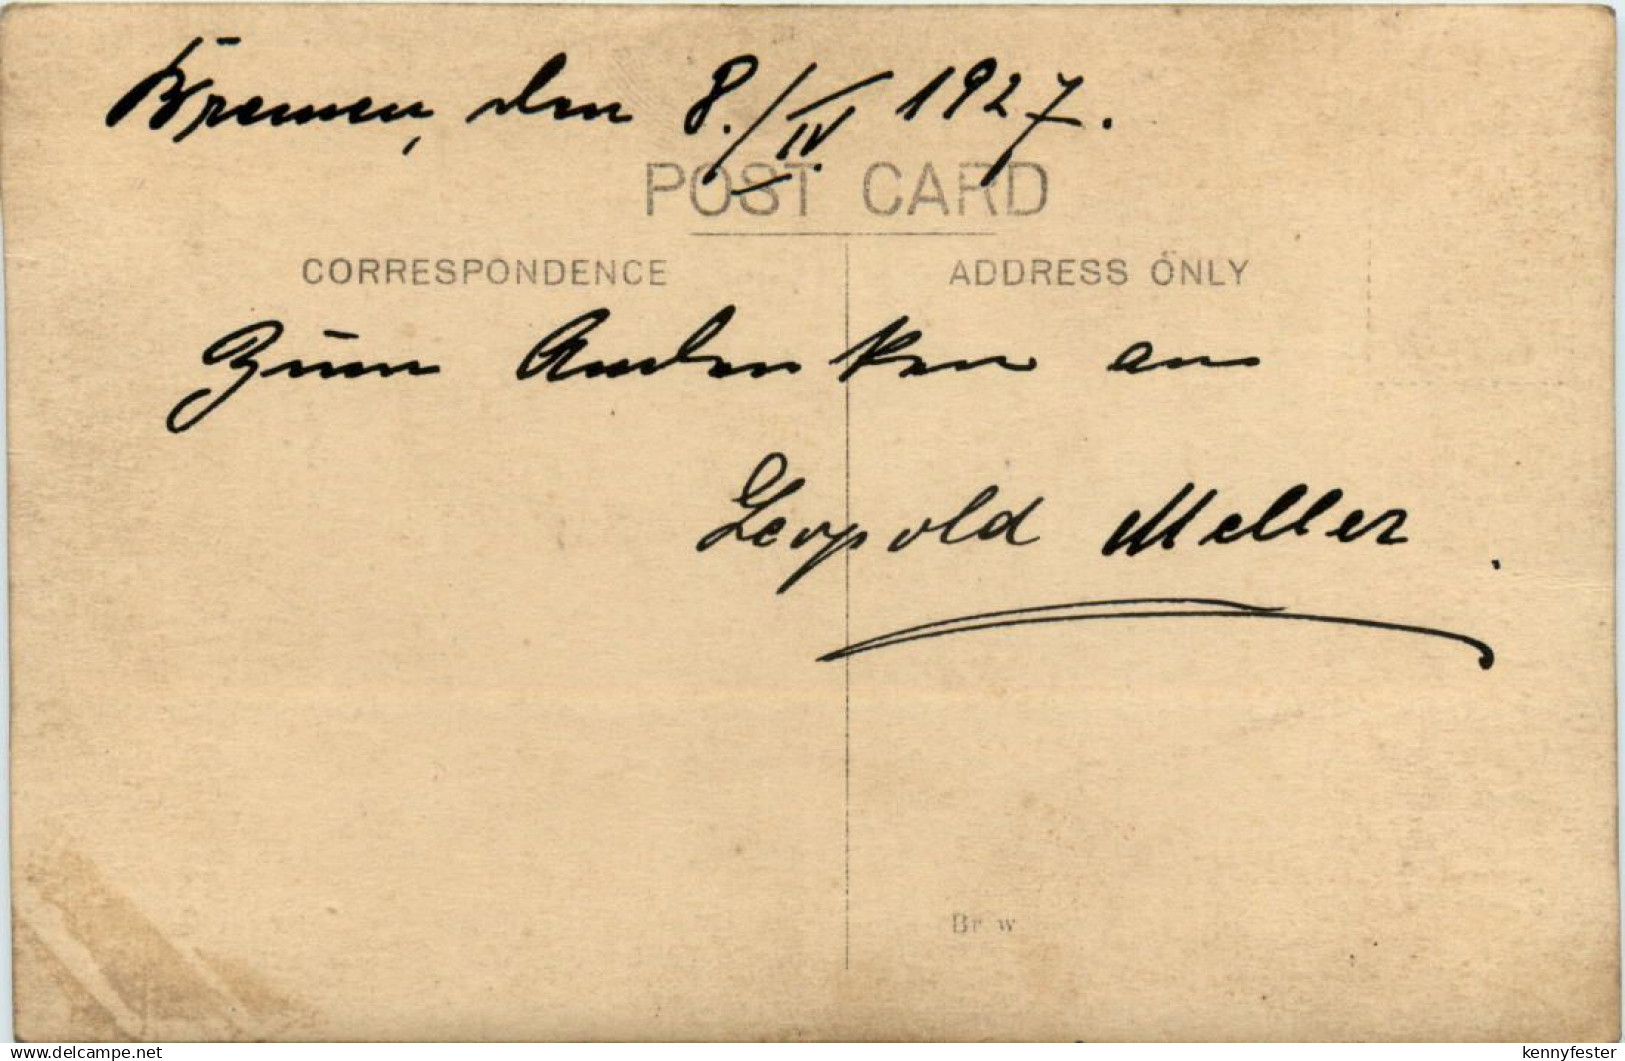 Bremen, den 8./IV. 1927.
POST CARD
CORRESPONDENCE
ADDRESS ONLY
Zum Andenken an
Leopold Meller.
Br w
delcampe.net
kennyfester